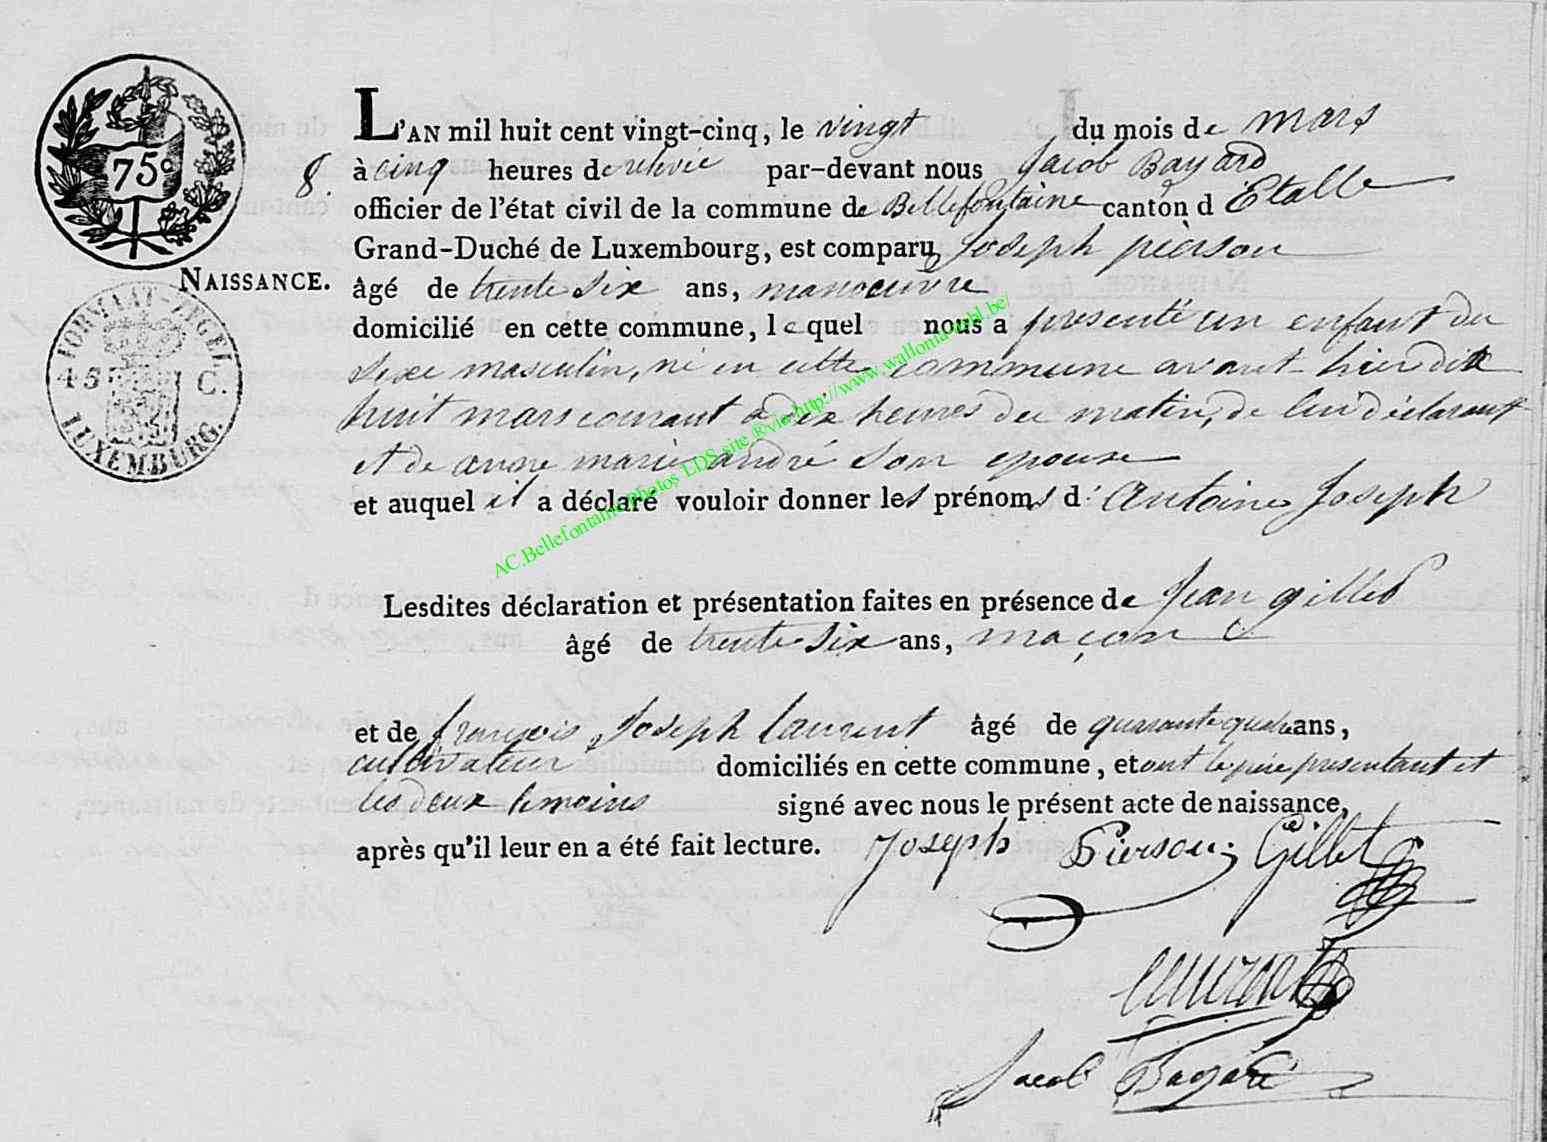 75c
8.
NAISSANCE.
FORMAAT-ZEGEL
45 C.
LUXEMBURG.
L'AN mil huit cent vingt-cinq, le vingt du mois de mars
à cinq heures de relevée par-devant nous Jacob Bayard
officier de l'état civil de la commune de Bellefontaine canton d'Etalle
Grand-Duché de Luxembourg, est comparu Joseph pierson
âgé de trente six ans, manoeuvre
domicilié en cette commune, lequel nous a presenté un enfant du
sexe masculin, né en cette commune avant-hier dix
huit mars courant à dix heures du matin, de lui déclarant
et de anne marie andré son epouse
et auquel il a déclaré vouloir donner les prénoms d'Antoine Joseph
AC.Bellefontaine Photos LDS site ®vlo http://www.wallonia-asbl.be/
Lesdites déclaration et présentation faites en présence de Jean gillet
âgé de trente six ans, maçon
et de françois Joseph laurent âgé de quarante quatre ans,
cultivateur domiciliés en cette commune, et ont le père presentant et
les deux temoins signé avec nous le présent acte de naissance,
après qu'il leur en a été fait lecture. Joseph Pierson; Gillet
laurent
Jacob Bayard